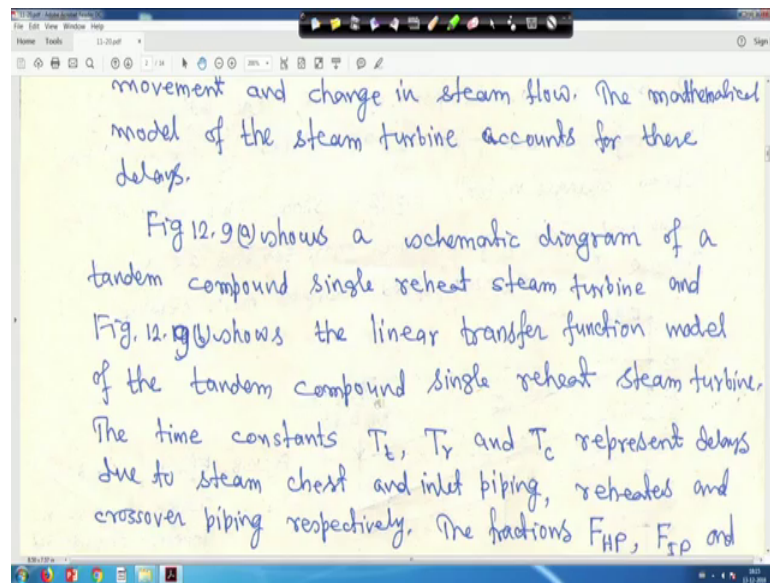 11-20.pdf - Adobe Acrobat Reader DC
File Edit View Window Help
Home Tools 11-20.pdf × Sign
2 / 14
movement and change in steam flow. The mathematical
model of the steam turbine accounts for there
delays.
Fig 12.9(a) shows a schematic diagram of a
tandem compound single reheat steam turbine and
Fig. 12.9(b) shows the linear transfer function model
of the tandem compound single reheat steam turbine.
The time constants Tt, Tr and Tc represent delays
due to steam chest and inlet piping, reheates and
crossover piping respectively. The fractions FHP, FIP and